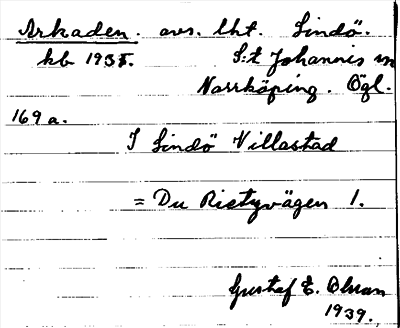 Arkaden. avs. lht. Lindö.
kb 1935. S:t Johannis
Norrköping. Ögl.
169 a.
I Lindö Villastad
= Du Rietzvägen 1.
Gustaf E. Olsson
1939.